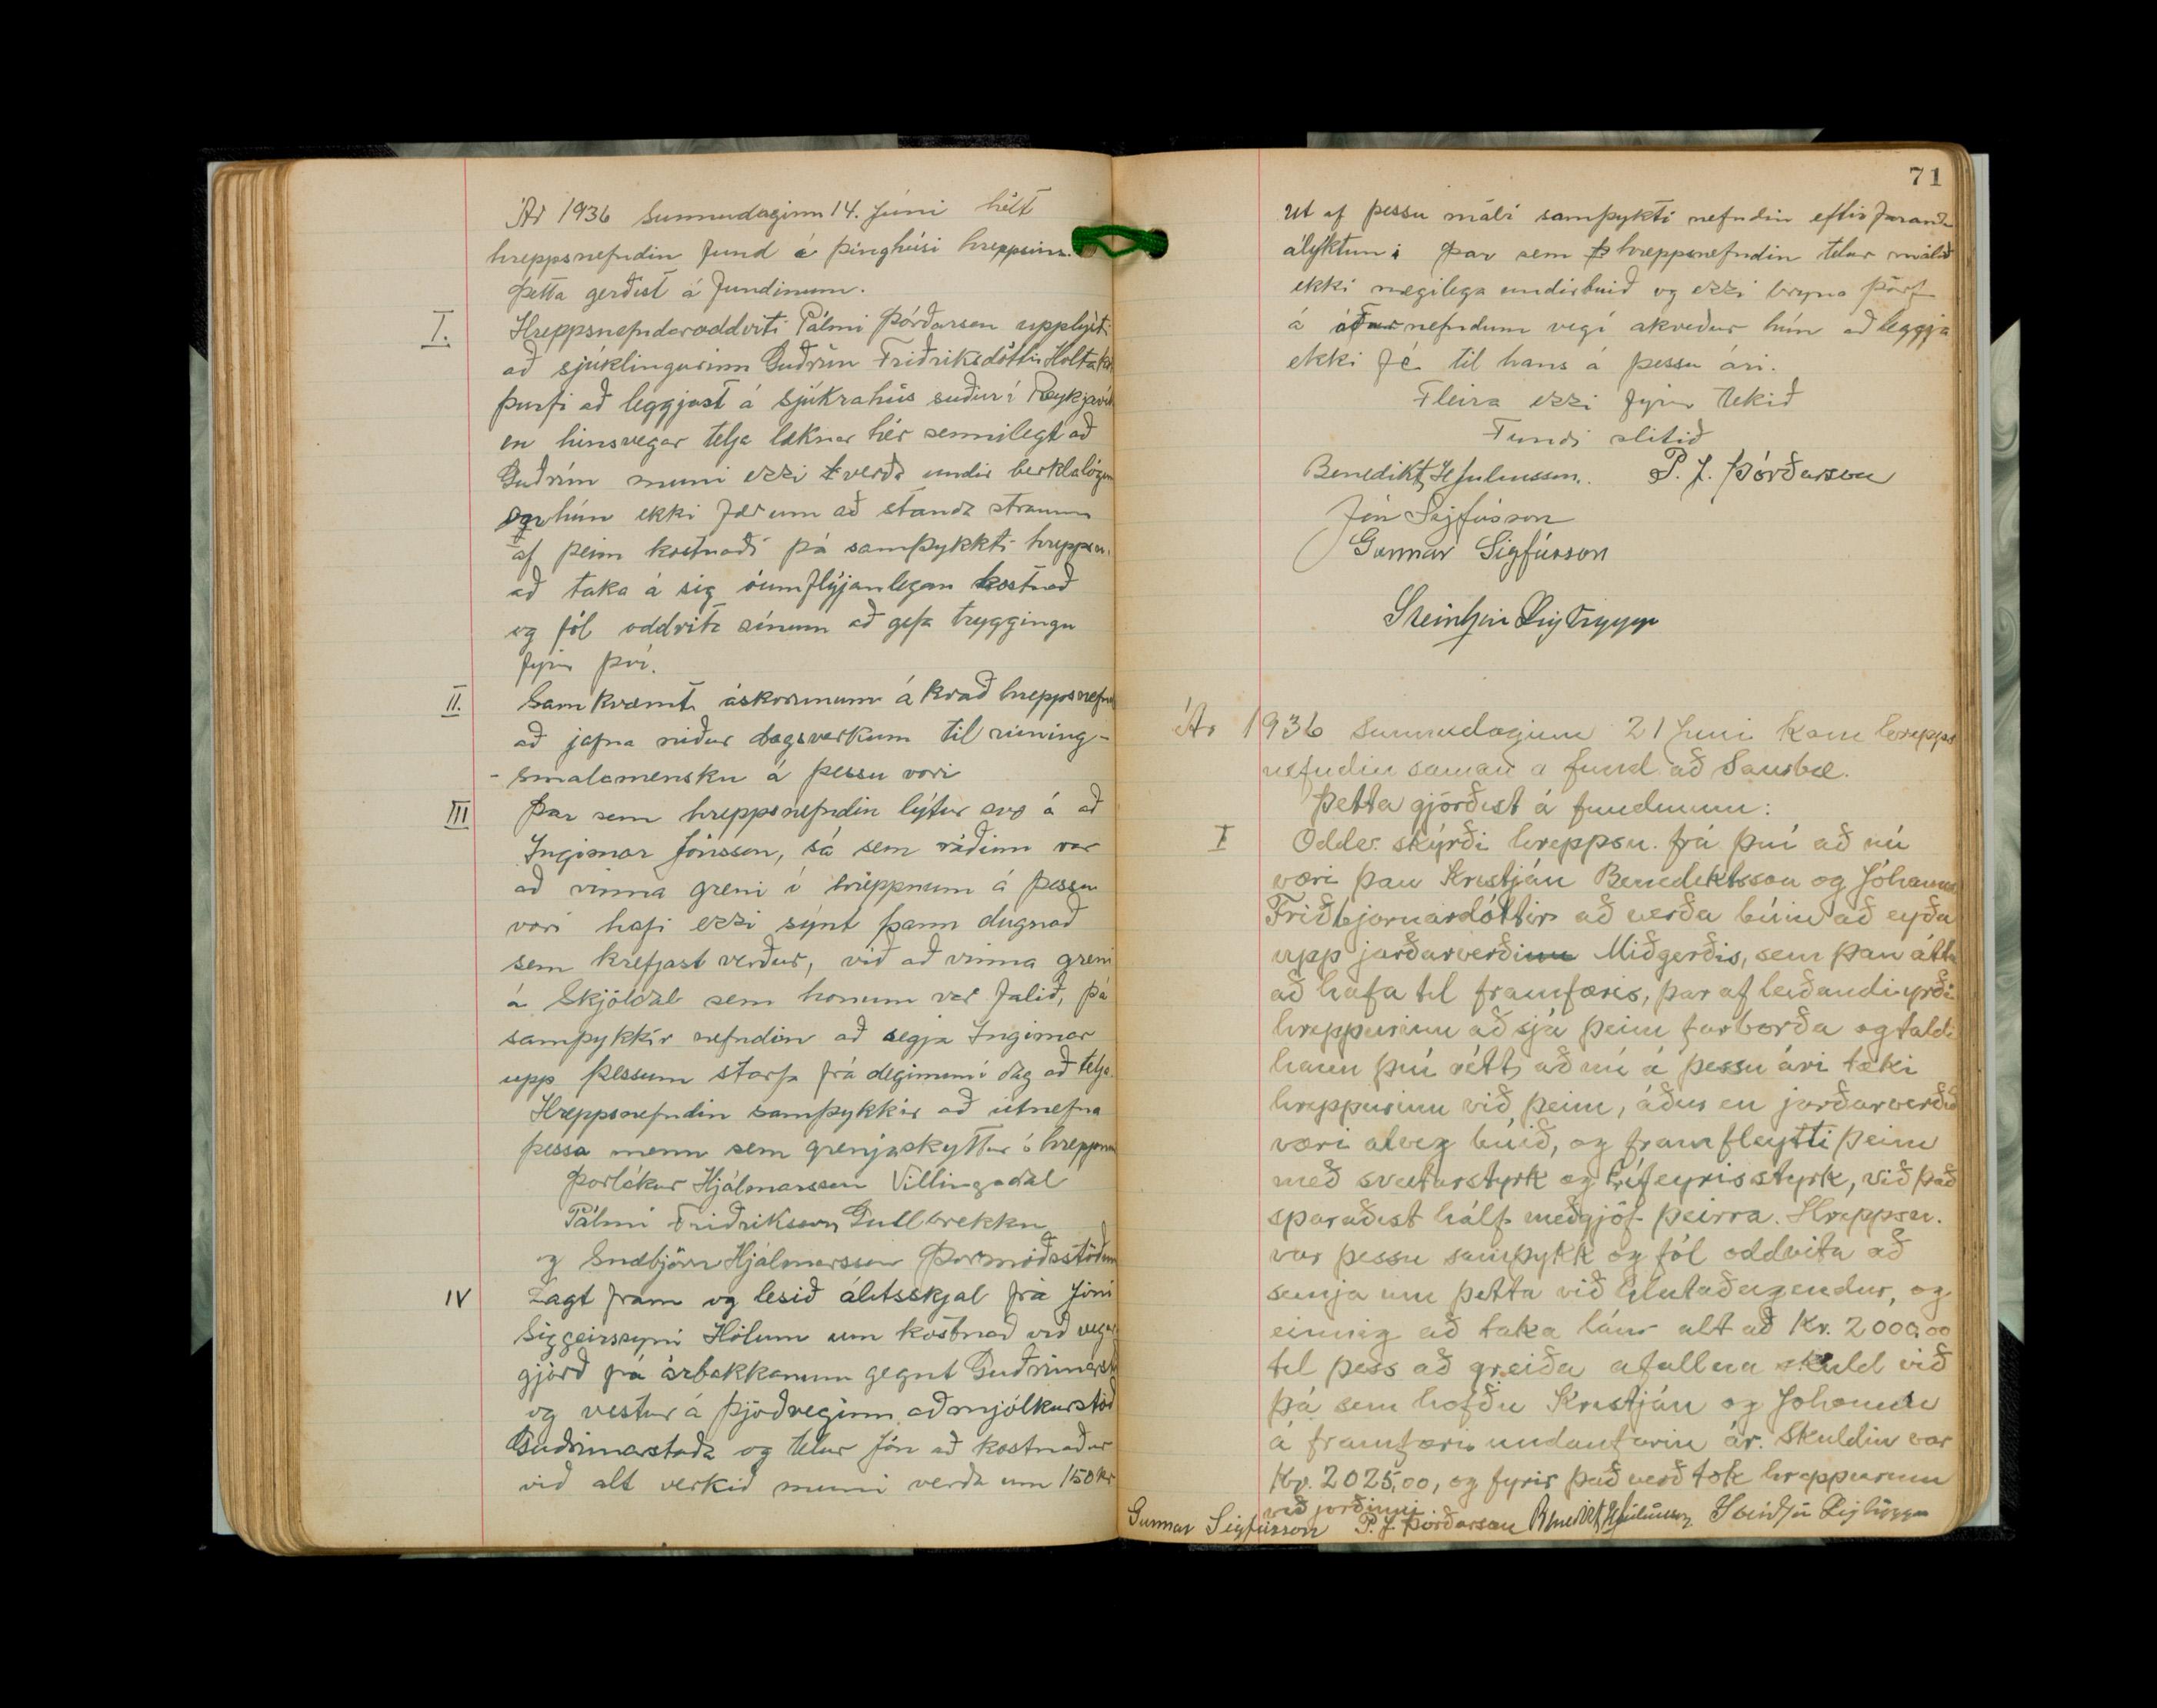 Ár 1936 Sunnudaginn 14. Júni hélt
hreppsnefndin fund á þinghúsi hreppsins.
Þetta gerðist á fundinum.
I. Hreppsnefndaroddviti Pálmi Þórðarson upplýsti
að sjúklingurinn Guðrún Friðriksdóttir
þurfi að leggjast á sjúkrahús suður í Reykjavík
en hinsvegar telja læknar hér sennilegt að
Guðrún muni ekki verða undir berklalögum
og hún ekki fær um að standa straum
af þeim kostnaði þá samþykkti hreppsn.
að taka á sig óumflýjanlegan kostnað
og fól oddvita sínum að gefa tryggingu
fyrir því.
II. Samkvæmt áskorunum ákvað hreppsnefnd
að jafna niður dagsverkum til rúning-
- smalamensku á þessu vori
III Þar sem hreppsnefndin lýtur svo á að
Ingimar Jónsson, sá sem ráðinn var
að vinna greni í hreppnum á þessu
vori hafi ekki sýnt þann dugnað
sem krefjast verður, við að vinna greni
á Skjóldal sem honum var falið, þá
samþykkir nefndin að segja Ingimar
upp þessum starfa frá deginum í dag að telja.
Hreppsnefndin samþykkir að útnefna
þessa menn sem grenjaskyttur í hreppnum
Þorlákur Hjálmarsson Villingadal
Pálmi Friðriksson Gullbrekku
og Snæbjörn Hjálmarsson Þormóðsstöðum
IV Lagt fram og lesið álitsskjal frá Jóni
Siggeirssyni Hólum um kostnað við vegar
gjörð frá árbakkanum gegnt Guðrúnarst
og vestur á þjóðveginn að mjólkurstöð
Guðrúnarstaða og telur Jón að kostnaður
við alt verkið muni verða um 150 kr
71
Ut af þessu máli samþykti nefndin eftirfarandi
ályktun: Þar sem hreppsnefndin telur málið
ekki nægilega undirbúið og ekki brýna þörf
á nefndum vegi akveður hún að leggja
ekki fé til hans á þessu ári.
Fleira ekki fyrir tekið
Fundi slitið
Benedikt Hjálmsson. P. J. Þórðarson
Jón Sigfússon
Gunnar Sigfússon
Ár 1936 Sunnudaginn 21 Juni kom hrepps
nefndin saman a fund að Saurbæ.
Þetta gjörðist á fundinum:
I Oddv. skýrði hreppsn. frá því að nú
væri þau Kristján Benediktsson og Jóhanna
Friðbjornardóttir að verða búin að eyða
upp jarðarverðinu Miðgerðis, sem þau áttu
að hafa til framfæris, þar af leiðandi yrði
hreppurinn að sjá þeim farborða og taldi
hann því rétt, að nú á þessu ári tæki
hreppurinn við þeim, áður en jarðarverðið
væri alveg búið, og framfleytti þeim
með sveitarstyrk og Lífeyrisstyrk, við það
sparaðist hálf meðgjöf þeirra. Hreppsn.
var þessu samþykk og fól oddvita að
semja um þetta við hlutaðeigendur, og
einnig að taka lán alt að Kr. 2000,00
til þess að greiða afallna skuld við
þá sem hofðu Kristján og Johönnu
á framfæri undanfarin ár. Skuldin var
Kr. 2025,00, og fyrir það verð tók hreppurinn
við jorðinni.
Gunnar Sigfússon P. J. Þórðarson Benedikt Hjálmsson